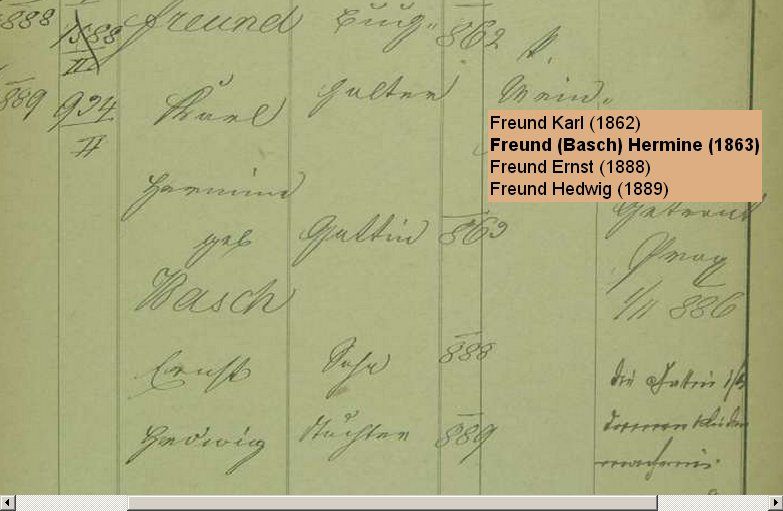 888 1588 Freund Eug. 862 k.
II
889 934 Karl Gatten Wein.
II
Freund Karl (1862)
Freund (Basch) Hermine (1863)
Freund Ernst (1888)
Freund Hedwig (1889)
Hermine
Getraut
geb Gattin 863
Prag
Basch
1/11 886
Ernst Sohn 888
die Gattin ist
Hedwig Tochter 889
macherin.